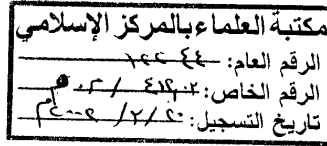 مكتبة العلماء بالمركز الإسلامي
الرقم العام: ١٢٢٤٤
الرقم الخاص:
تاريخ التسجيل: ٢٠/٢/٢٠٠٢م